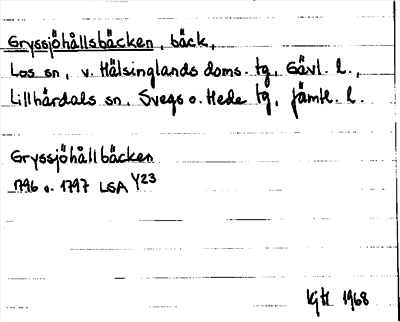 Gryssjöhållsbäcken, bäck,
Los sn, v. Hälsinglands doms. tg, Gävl. l.,
Lillhärdals sn, Svegs o. Hede tg, Jämtl. l.
Gryssjöhållbäcken
1796 o. 1797 LSA Y23
1968